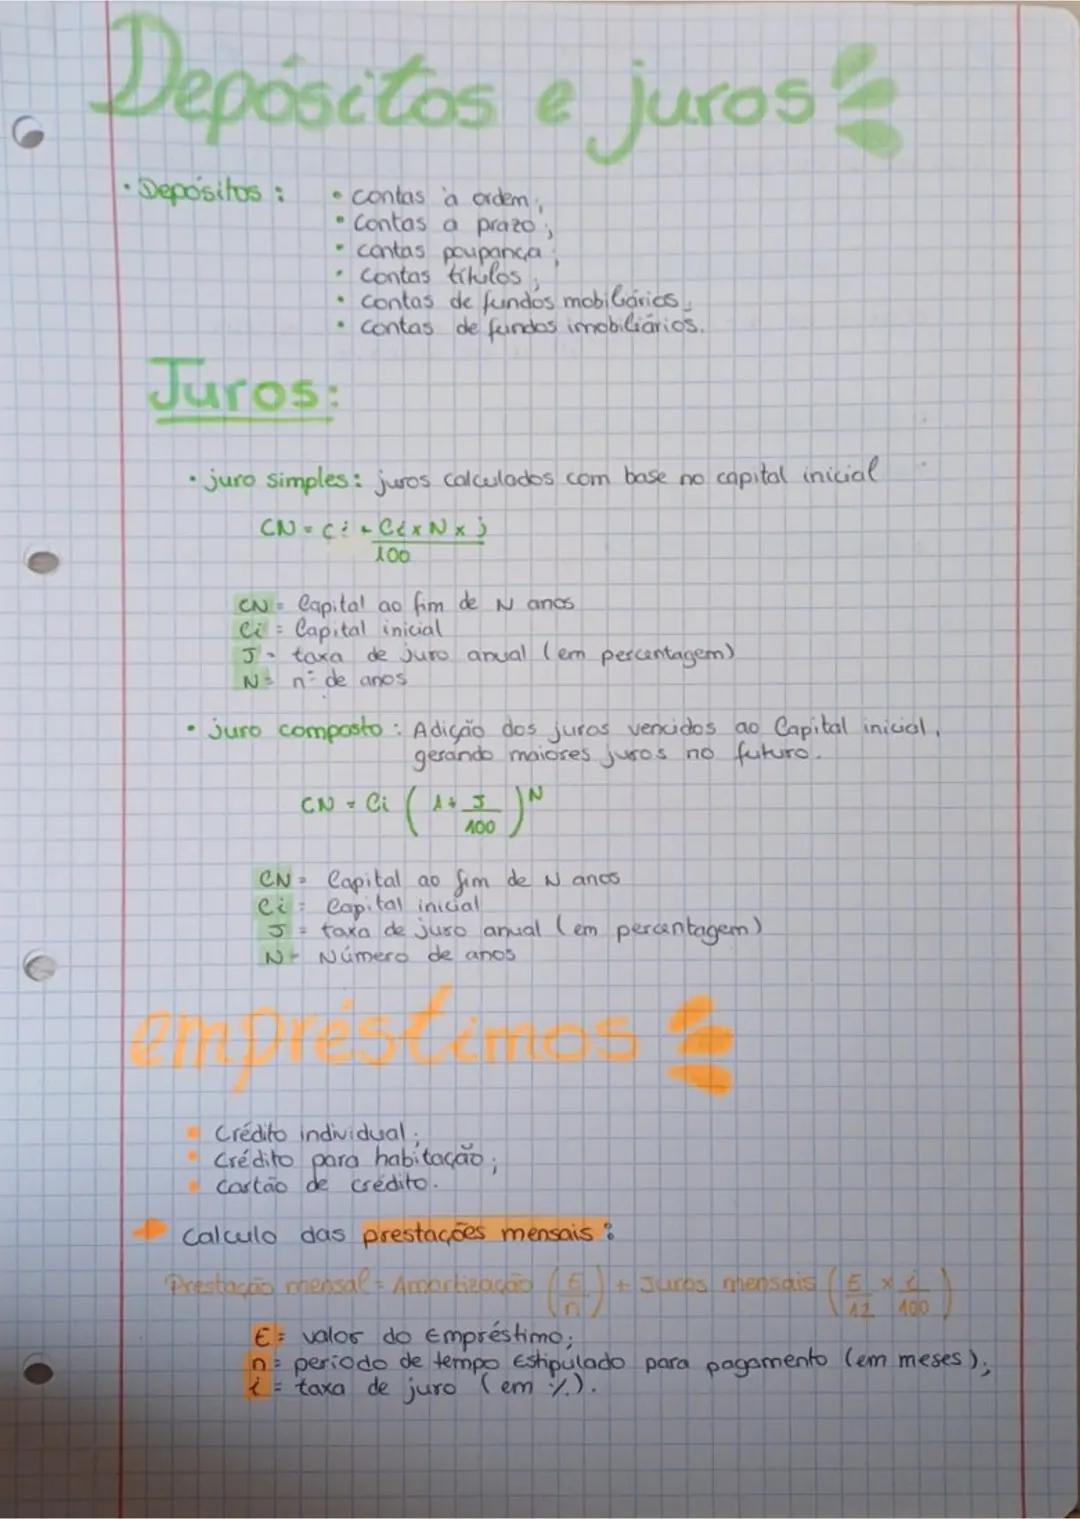 Depósitos e juros
• Depósitos : • contas à ordem ;
• contas a prazo ;
• contas poupança ;
• contas títulos ;
• contas de fundos mobiliários ;
• contas de fundos imobiliários.
Juros:
• juro simples : juros calculados com base no capital inicial
CN = Ci + Ci x N x j
100
CN = Capital ao fim de N anos
Ci = Capital inicial
J = taxa de juro anual (em percentagem)
N = nº de anos
• juro composto : Adição dos juros vencidos ao Capital inicial,
gerando maiores juros no futuro.
CN = Ci ( 1 + J/100 )^N
CN = Capital ao fim de N anos
Ci = Capital inicial
J = taxa de juro anual (em percentagem)
N = Número de anos
empréstimos
• Crédito individual ;
• Crédito para habitação ;
• Cartão de crédito.
Calculo das prestações mensais :
Prestação mensal = Amortização ( E/n ) + Juros mensais ( E/12 x i/100 )
E = valor do Empréstimo;
n = período de tempo Estipulado para pagamento (em meses);
i = taxa de juro (em %).